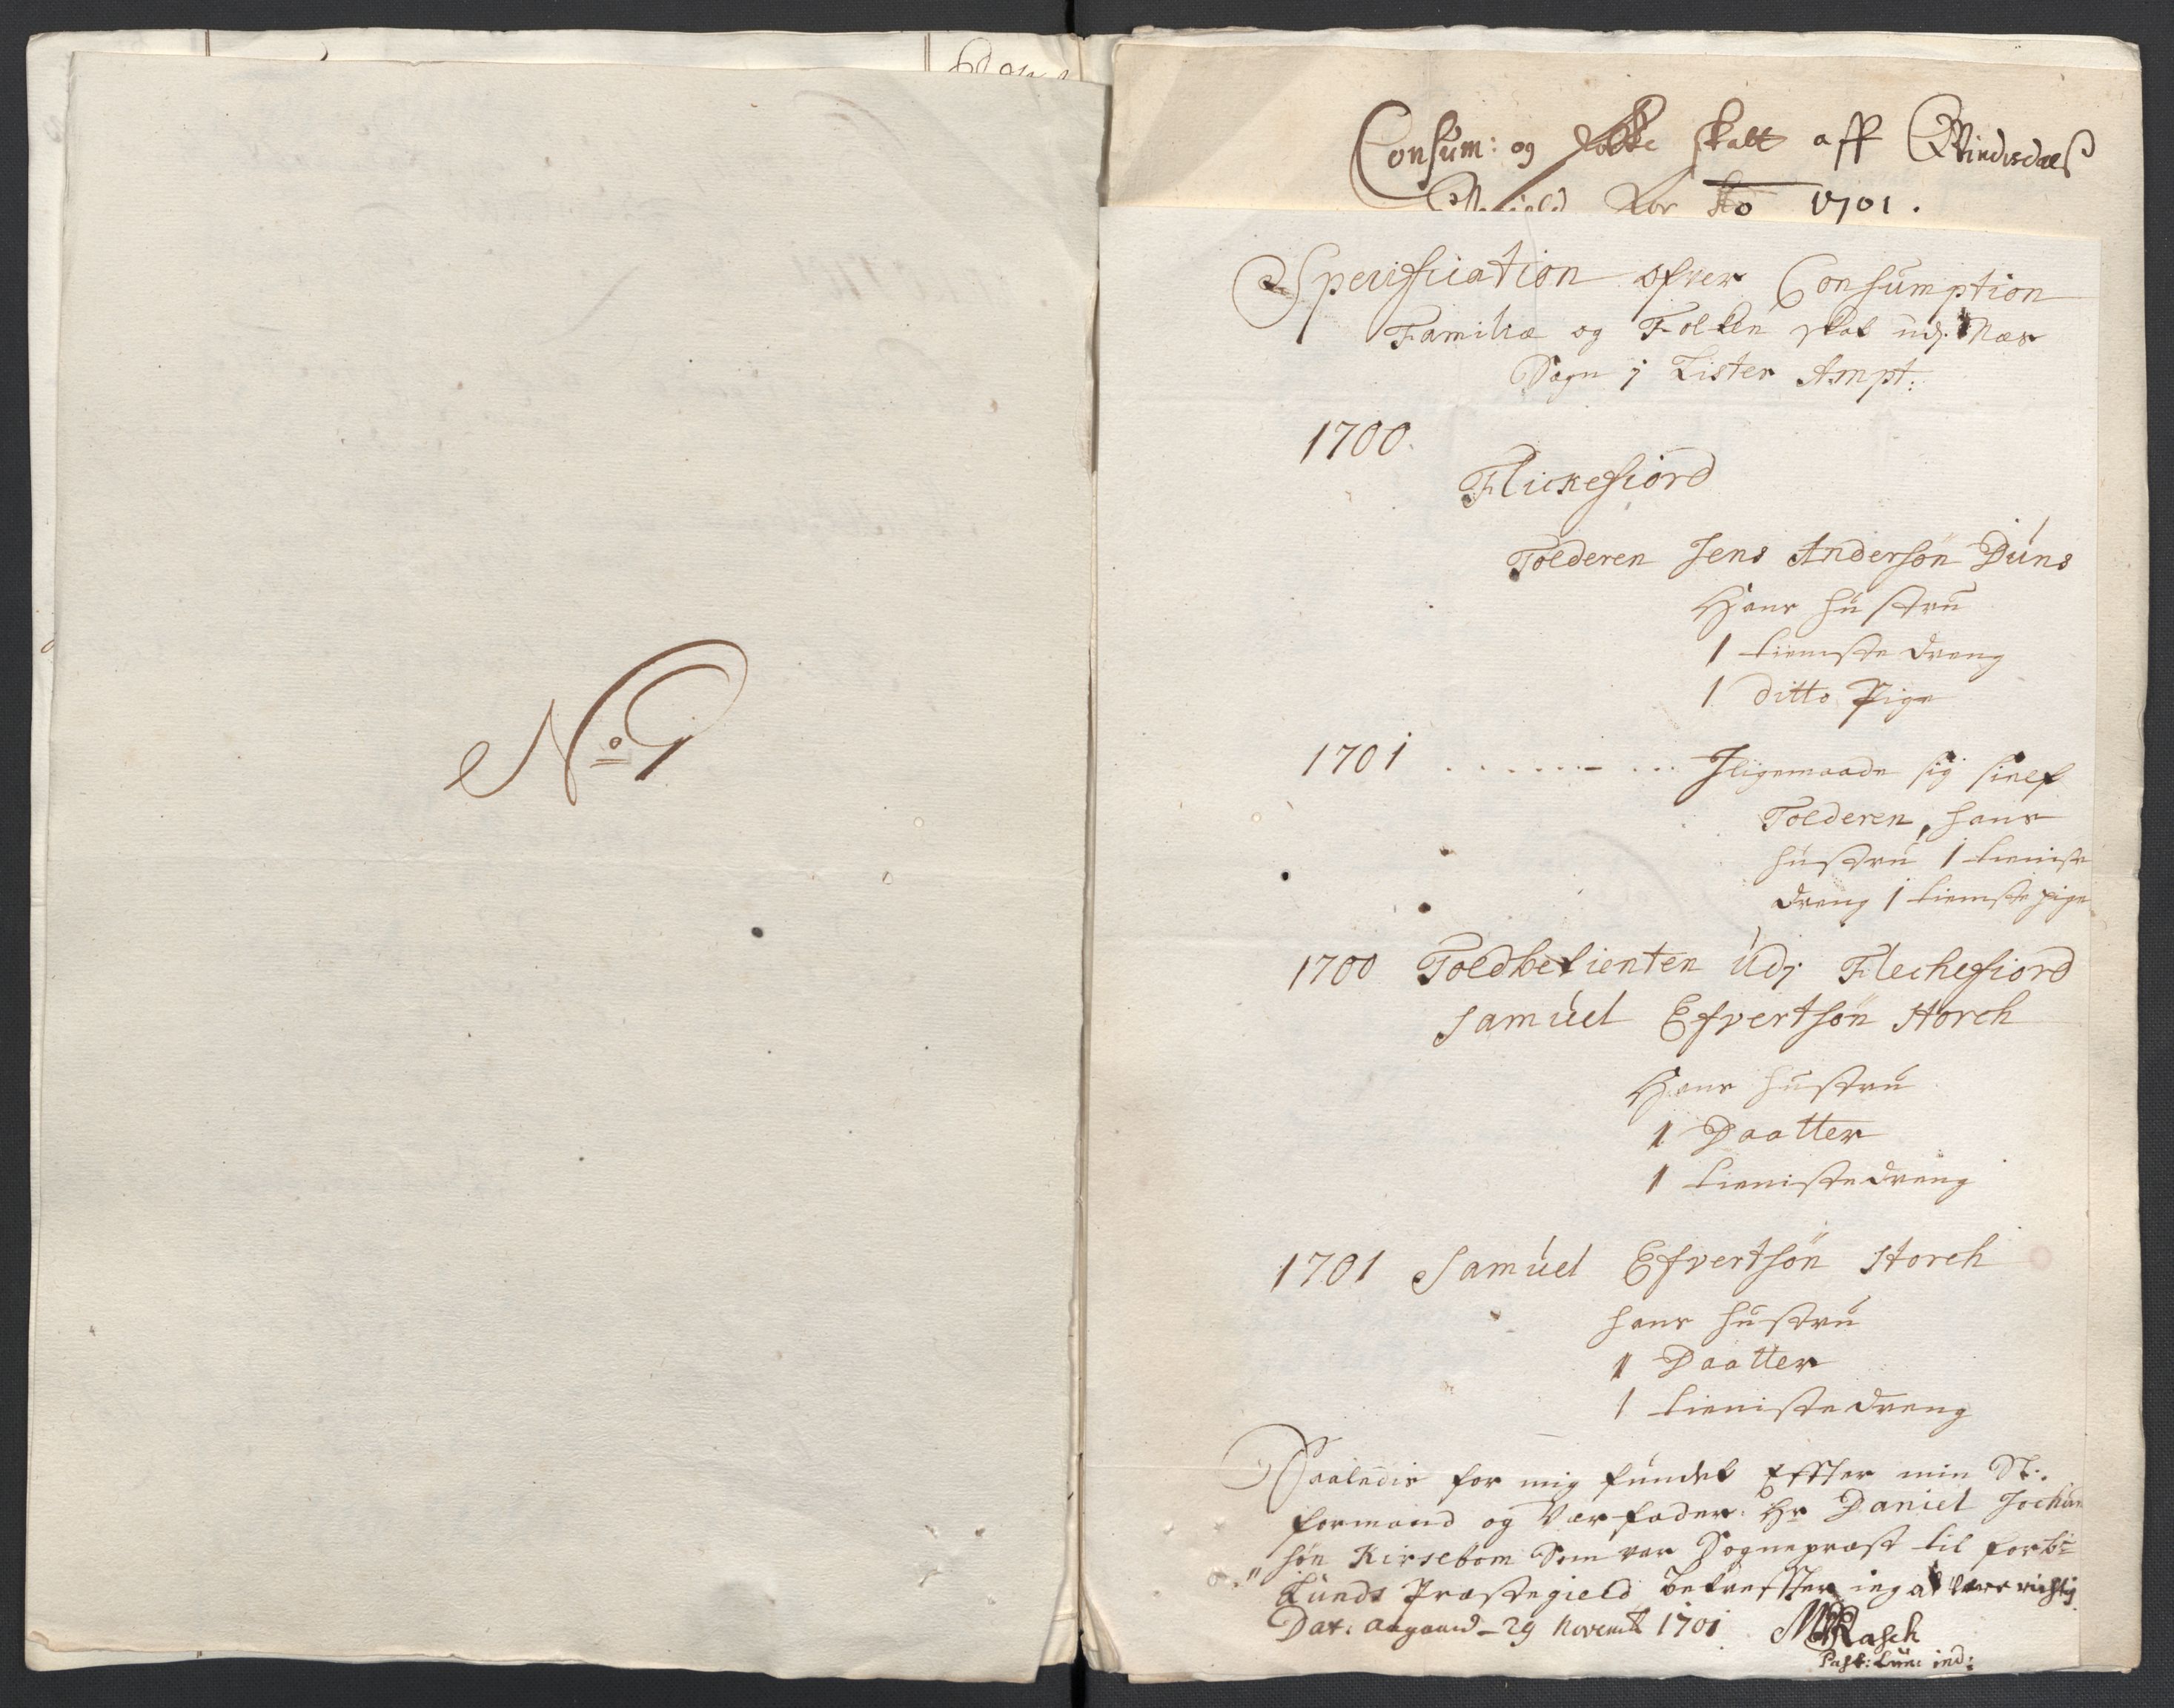 No 9
Consum: og folke skatt aff Qvindisdals
for Ao 1701.
Specification ofver Consumption
Familiæ og Folken skat udj Næs
Sogn j Lister Ampt:
1700.
Flickefiord
Tolderen Jens Andersøn Duns
Hans hustru
1 tienniste dreng
1 ditto Pige
1701 . . . . . . - . . . Jligemaade sig sielf
Tolderen, hans
hustru 1 tieniste
dreng 1 tienniste pige
1700 Toldbetienten Udj Flechefiord
Samuel Efvertsøn Storch
Hans hustru
1 Daatter
1 tieniste dreng
1701 Samuel Efvertsøn Storch
hans hustru
1 Daatter
1 tieniste dreng
Saaledis for mig fundet Effter min Sl:
formand og Værfader Hr Daniel Jochum
søn Kirsebom Som var Sognepræst til forbe
Lunds Præstegield bekreffter ieg at være richtig
Dat: Aagaard - 29 Novemb 1701 MRasch
Past: Lun: ind: